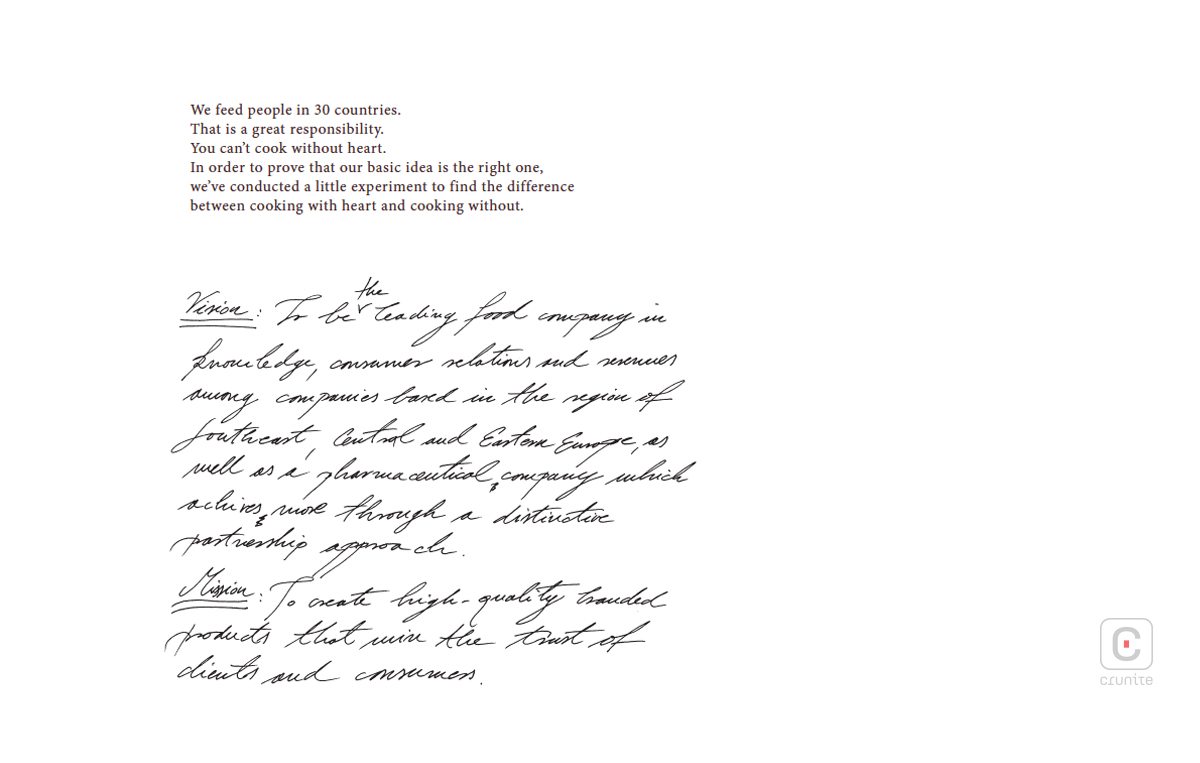 We feed people in 30 countries.
That is a great responsibility.
You can’t cook without heart.
In order to prove that our basic idea is the right one,
we’ve conducted a little experiment to find the difference
between cooking with heart and cooking without.
the
Vision: To be leading food company in
knowledge, consumer relations and revenues
among companies based in the region of
Southeast, Central and Eastern Europe, as
well as a pharmaceutical company which
achives more through a distinctive
partnership approach.
Mission: To create high-quality branded
products that win the trust of
clients and consumers.
crunite